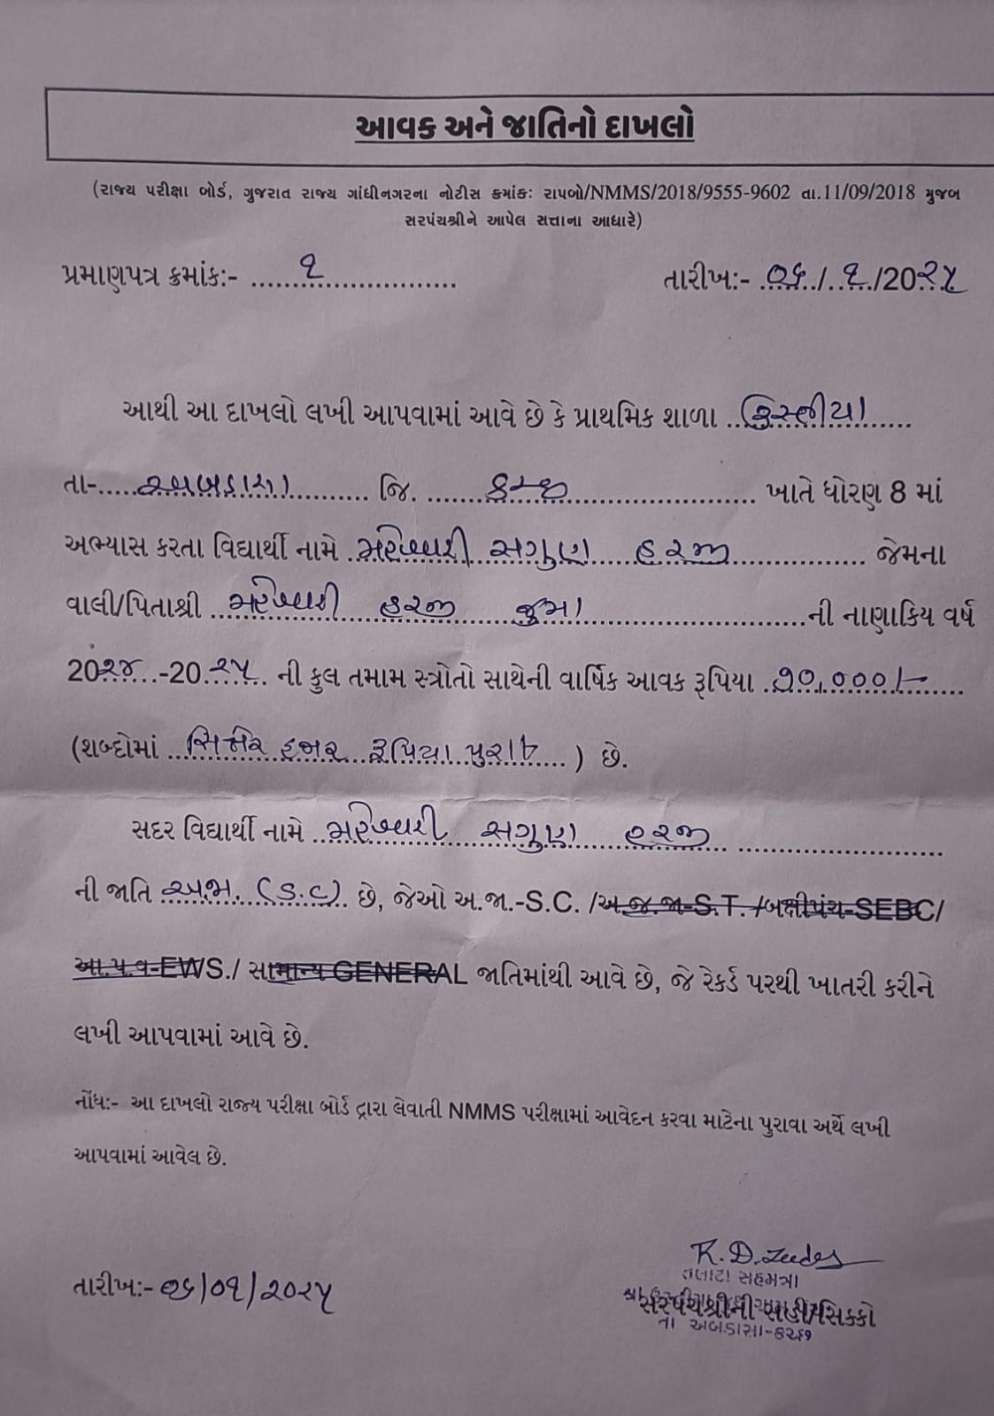 આવક અને જાતિનો દાખલો
(રાજ્ય પરીક્ષા બોર્ડ, ગુજરાત રાજ્ય ગાંધીનગરના નોટીસ ક્રમાંક: રાપબો/NMMS/2018/9555-9602 તા.11/09/2018 મુજબ
સરપંચશ્રીને આપેલ સત્તાના આધારે)
પ્રમાણપત્ર ક્રમાંક:- ૧ તારીખ:- ૦૬/૧/20૨૫
આથી આ દાખલો લખી આપવામાં આવે છે કે પ્રાથમિક શાળા
તા- અબડાસા જિ. કચ્છ ખાતે ધોરણ 8 માં
અભ્યાસ કરતા વિદ્યાર્થી નામે મહેશ્વરી સગુણ હરજી જેમના
વાલી/પિતાશ્રી મહેશ્વરી હરજી જુમા ની નાણાકિય વર્ષ
20૨૪-20૨૫ ની કુલ તમામ સ્ત્રોતો સાથેની વાર્ષિક આવક રૂપિયા ૭૦,૦૦૦/-
(શબ્દોમાં સિત્તેર હજાર રૂપિયા પુરા) છે.
સદર વિદ્યાર્થી નામે મહેશ્વરી સગુણ હરજી
ની જાતિ અ.જા. (S.C) છે, જેઓ અ.જા.-S.C. /અ.જ.જા-S.T. /બક્ષીપંચ-SEBC/
આ.પ.વ-EWS./ સામાન્ય GENERAL જાતિમાંથી આવે છે, જે રેકર્ડ પરથી ખાતરી કરીને
લખી આપવામાં આવે છે.
નોંધ:- આ દાખલો રાજ્ય પરીક્ષા બોર્ડ દ્વારા લેવાતી NMMS પરીક્ષામાં આવેદન કરવા માટેના પુરાવા અર્થે લખી
આપવામાં આવેલ છે.
તલાટી સહમંત્રી
તારીખ:- ૦૬/૦૧/૨૦૨૫
સરપંચશ્રીની સહી/સિક્કો
તા અબડાસા-કચ્છ